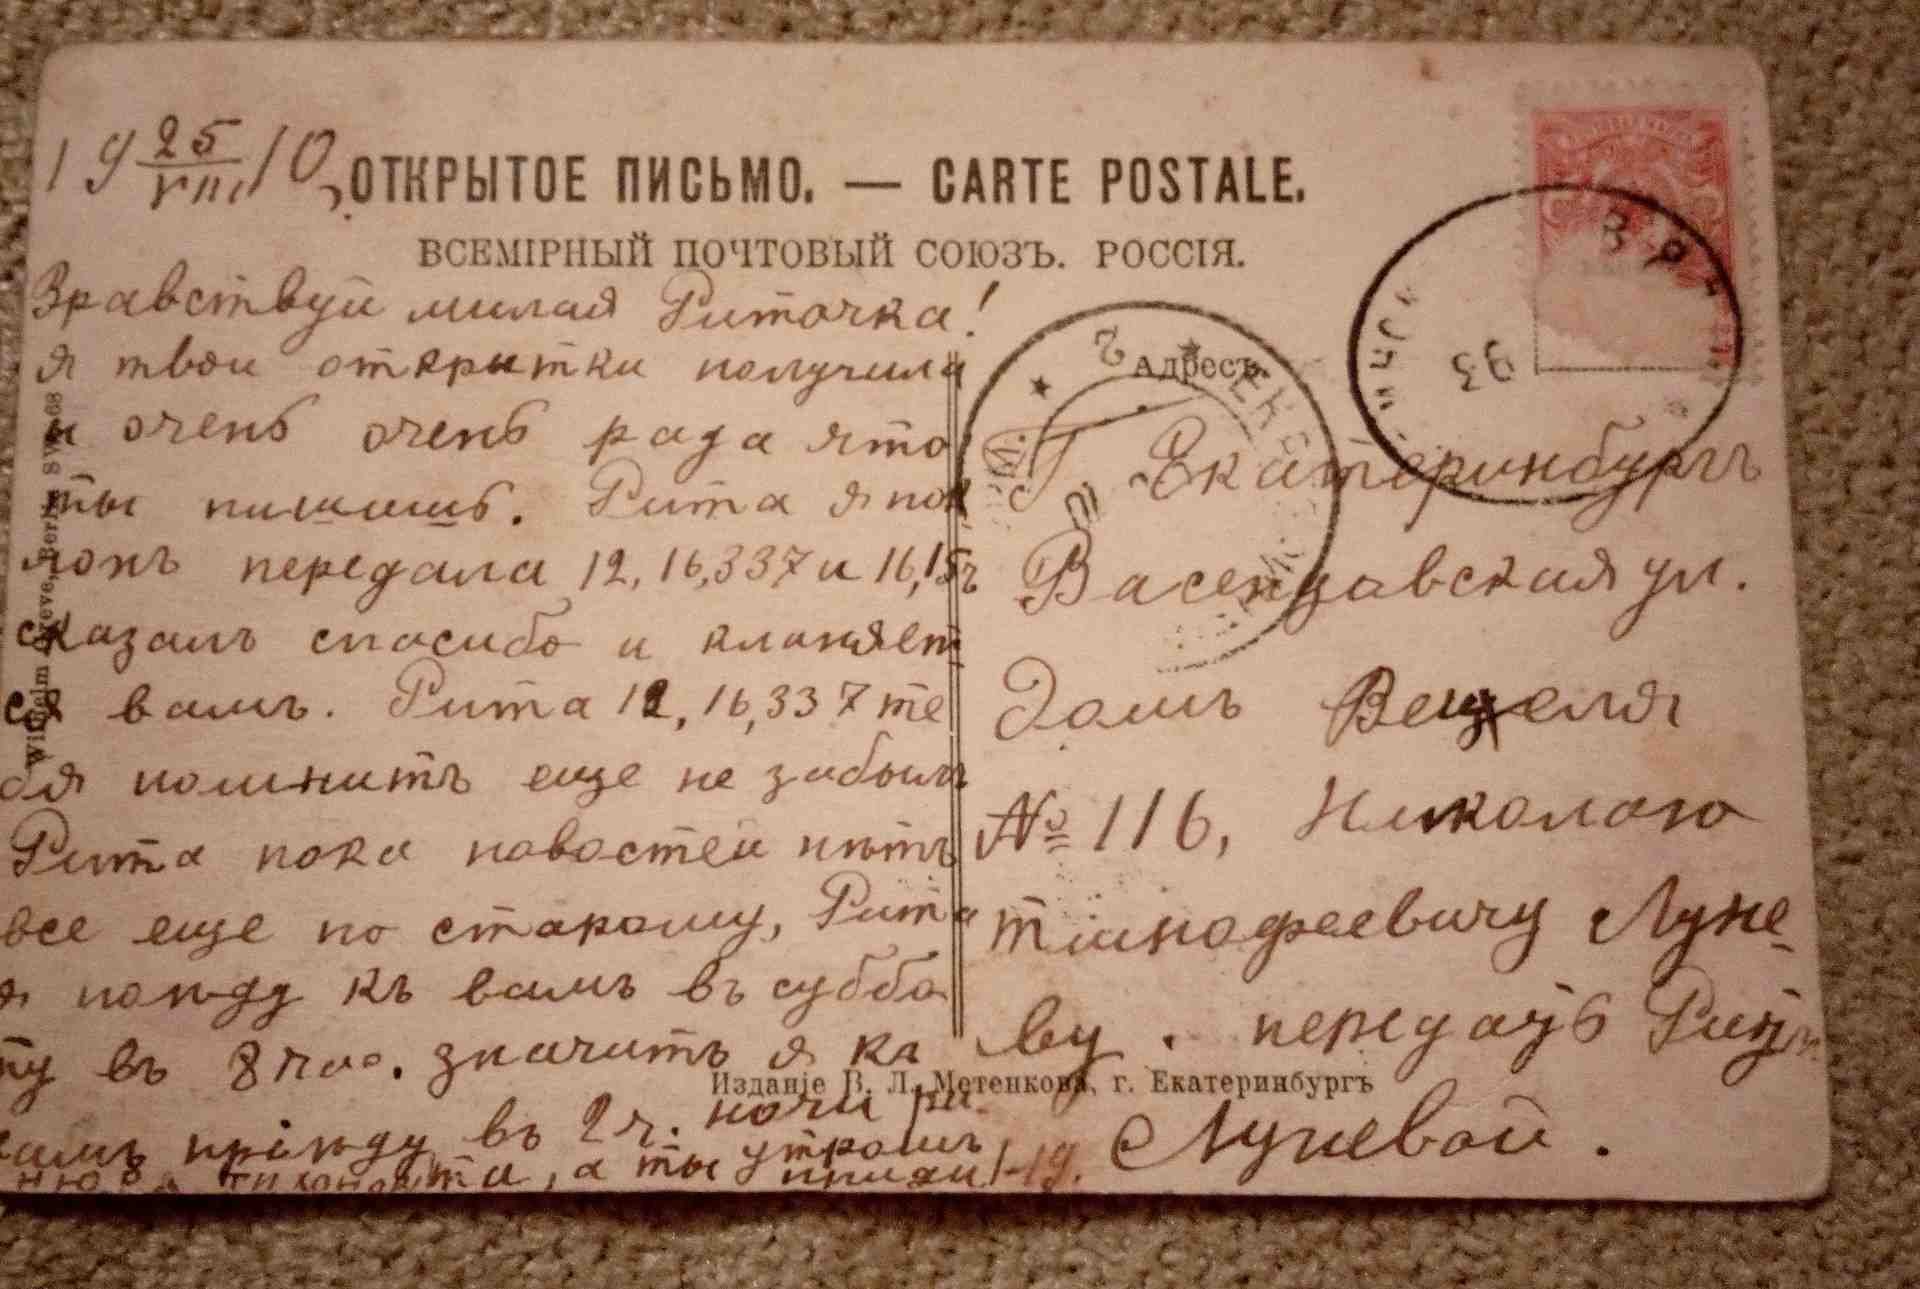 19 25/VIII 10
ОТКРЫТОЕ ПИСЬМО. — CARTE POSTALE.
ВСЕМІРНЫЙ ПОЧТОВЫЙ СОЮЗЪ. РОССІЯ.
Здравствуй милая Риточка!
я твои открытки получила
и очень очень рада что
ты пишишь. Рита я пок
лонъ передала 12,16,337 и 16,15ъ
сказалъ спасибо и кланяет
ся вамъ. Рита 12,16,337 те
бя помнитъ еще не забылъ
Рита пока новостей нѣтъ
все еще по старому, Рита
я поѣду къ вамъ въ суббо
ту въ 8 час. значитъ я къ
вамъ пріѣду въ 2 ч. ночи
а ты утромъ
Адресъ.
Г. Екатеринбургъ
Васенцовская ул.
Домъ Вецеля
№ 116, Николаю
Тимофеевичу Луне-
ву. передать
Луневой.
Изданіе В. Л. Метенкова, г. Екатеринбургъ
Wilhelm Greve, Berlin SW. 68
93
2